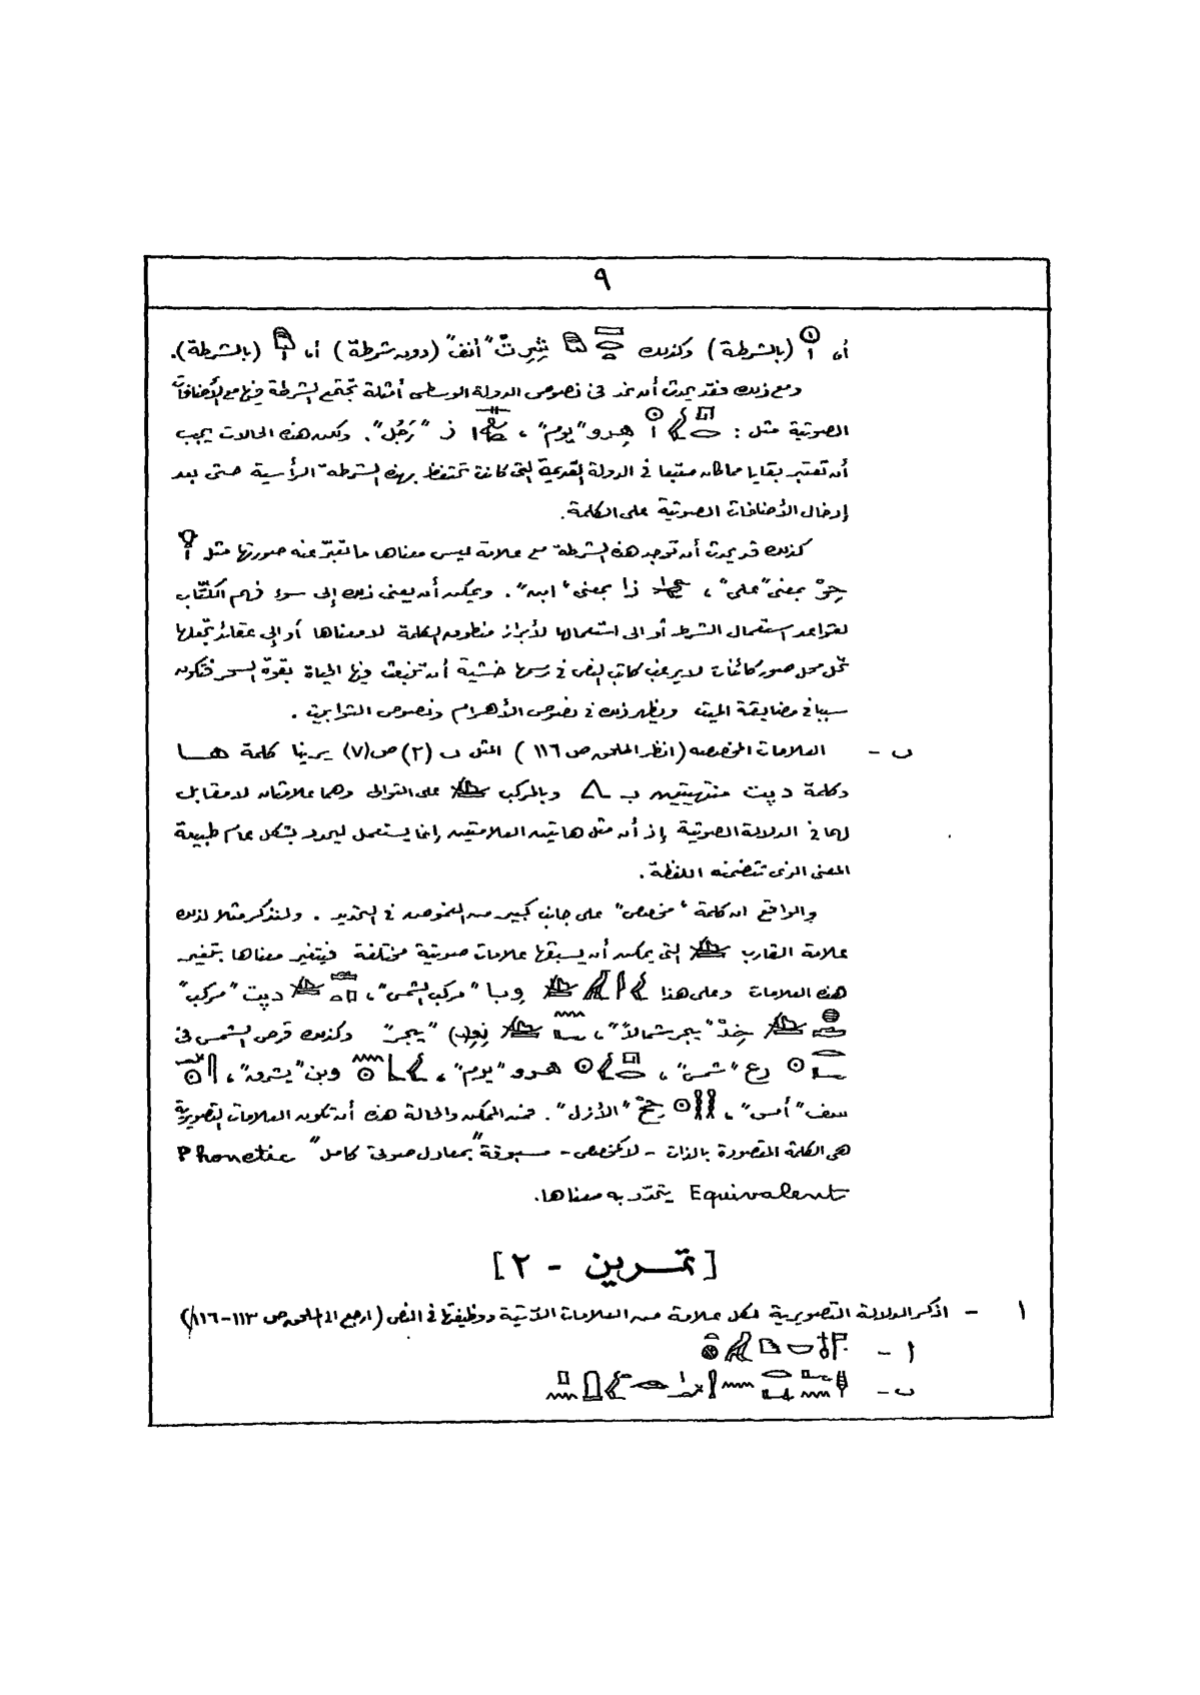 ٩
أو (بالشرطة) وكذلك شِرِتْ "أنف" (دون شرطة) أو (بالشرطة).
ومع ذلك فقد يحدث أن نجد في نصوص الدولة الوسطى أمثلة تجتمع الشرطة فيها مع الإضافات
الصوتية مثل : هِرو "يوم" ، ز "رَجُل". ولكن هذه الحالات يجب
أن تعتبر بقايا مما كان متبعا في الدولة القديمة التي كانت تحتفظ بهذه الشرطة الرأسية حتى بعد
إدخال الإضافات الصوتية على الكلمة.
كذلك قد يحدث أن توجد هذه الشرطة مع علامة ليس معناها ما تعبّر عنه صورتها مثل
حِرْ بمعنى "على" ، زا بمعنى "ابن". ويمكن أن يعنى ذلك إلى سوء فهم الكُتّاب
لقواعد استعمال الشرطة أو الى استعمالها لأبراز منطوق الكلمة لا معناها أو إلى عقائد تجعلها
تحل محل صور كائنات لا يرغب كاتب النص في رسمها خشية أن تنبعث فيها الحياة بقوة السحر فتكون
سببا في مضايقة الميت ويظهر ذلك في نصوص الأهرام ونصوص التوابيت .
ب - العلامات المخصصه (انظر الملحق ص ١١٦ ) المثل ب (٢) ص(٧) يرينا كلمة هـا
وكلمة دپت منتهيتين ب وبالمركب على التوالى وهما علامتان لا مقابل
لهما في الدلالة الصوتية إذ أن مثل هاتين العلامتين إنما يستعمل ليحدد بشكل عام طبيعة
المعنى الذى تتضمنه اللفظة .
والواقع ان كلمة "مخصص" على جانب كبير من الغموض في التحديد . ولنذكر مثلا لذلك
علامة القارب التى يمكن أن يسبقها علامات صوتية مختلفة فيتغير معناها بتغيير
هذه العلامات وعلى هذا وِيا "مركب الشمس"، دپت "مركب"
خِدْ "يبحر شمالاً"، نِعِ(ى) "يبحر" وكذلك قرص الشمس في
رع "شمس"، هـرو "يوم"، وبن "يشرق"،
سف "أمس"، حِحْ "الأزل". فمن الممكن والحالة هذه أن تكون العلامات التصويرية
هى الكلمة المقصودة بالذات - لا كمخصص - مسبوقة "بمعادل صوتى كامل" Phonetic
Equivalent يتحدّد به معناها.
[تمـرين - ٢]
١ - اذكر الدلالة التصويرية لكل علامة من العلامات الآتية ووظيفتها في النص (ارجع الى الملحق ص ١١٣-١١٦)
أ - 
ب -